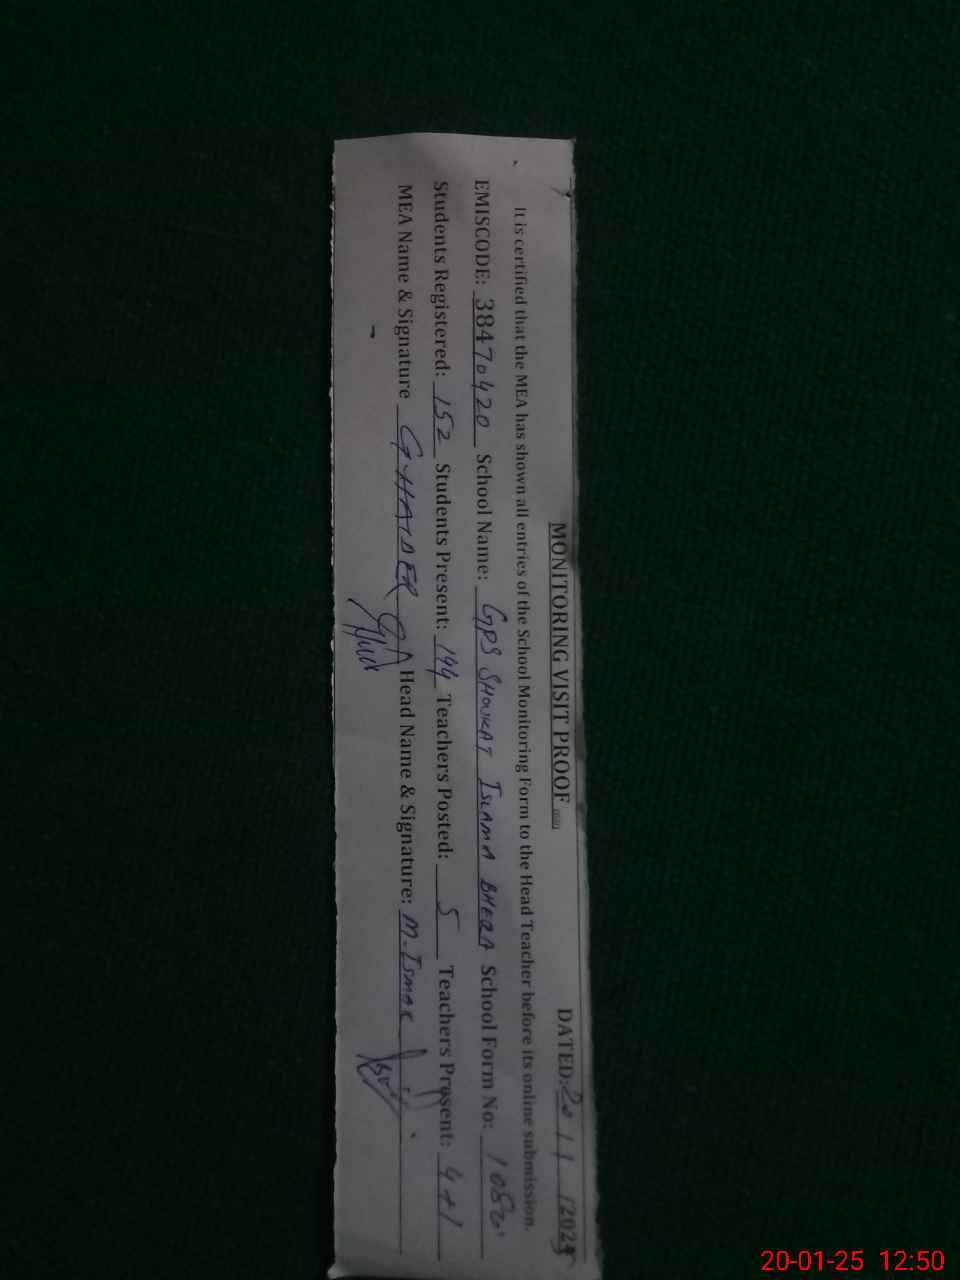 MONITORING VISIT PROOF DATED: 20/1/2025
It is certified that the MEA has shown all entries of the School Monitoring Form to the Head Teacher before its online submission.
EMISCODE: 38470420 School Name: GPS SHOUKAT ISLAMA BHERA School Form No: 10820
Students Registered: 152 Students Present: 144 Teachers Posted: 5 Teachers Present: 4+1
MEA Name & Signature G HAIDER Head Name & Signature: M. ISMAE
20-01-25 12:50